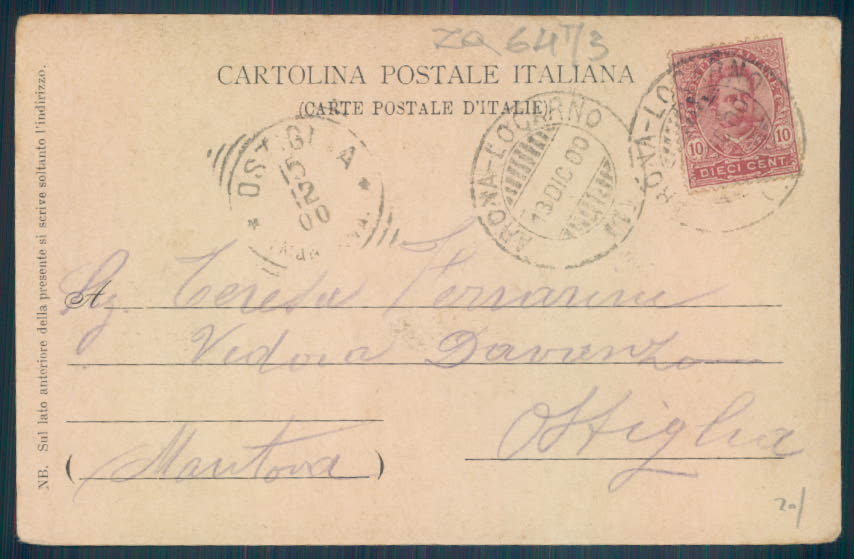 ZA 64 T/3
CARTOLINA POSTALE ITALIANA
(CARTE POSTALE D'ITALIE)
DIECI CENT.
10 10
ARONA-LOCARNO
13 DIC 00
OSTIGLIA
00
A Teresa Ferrarini
Vedova Davanzo
Ostiglia
(Mantova)
NB. Sul lato anteriore della presente si scrive soltanto l'indirizzo.
20/